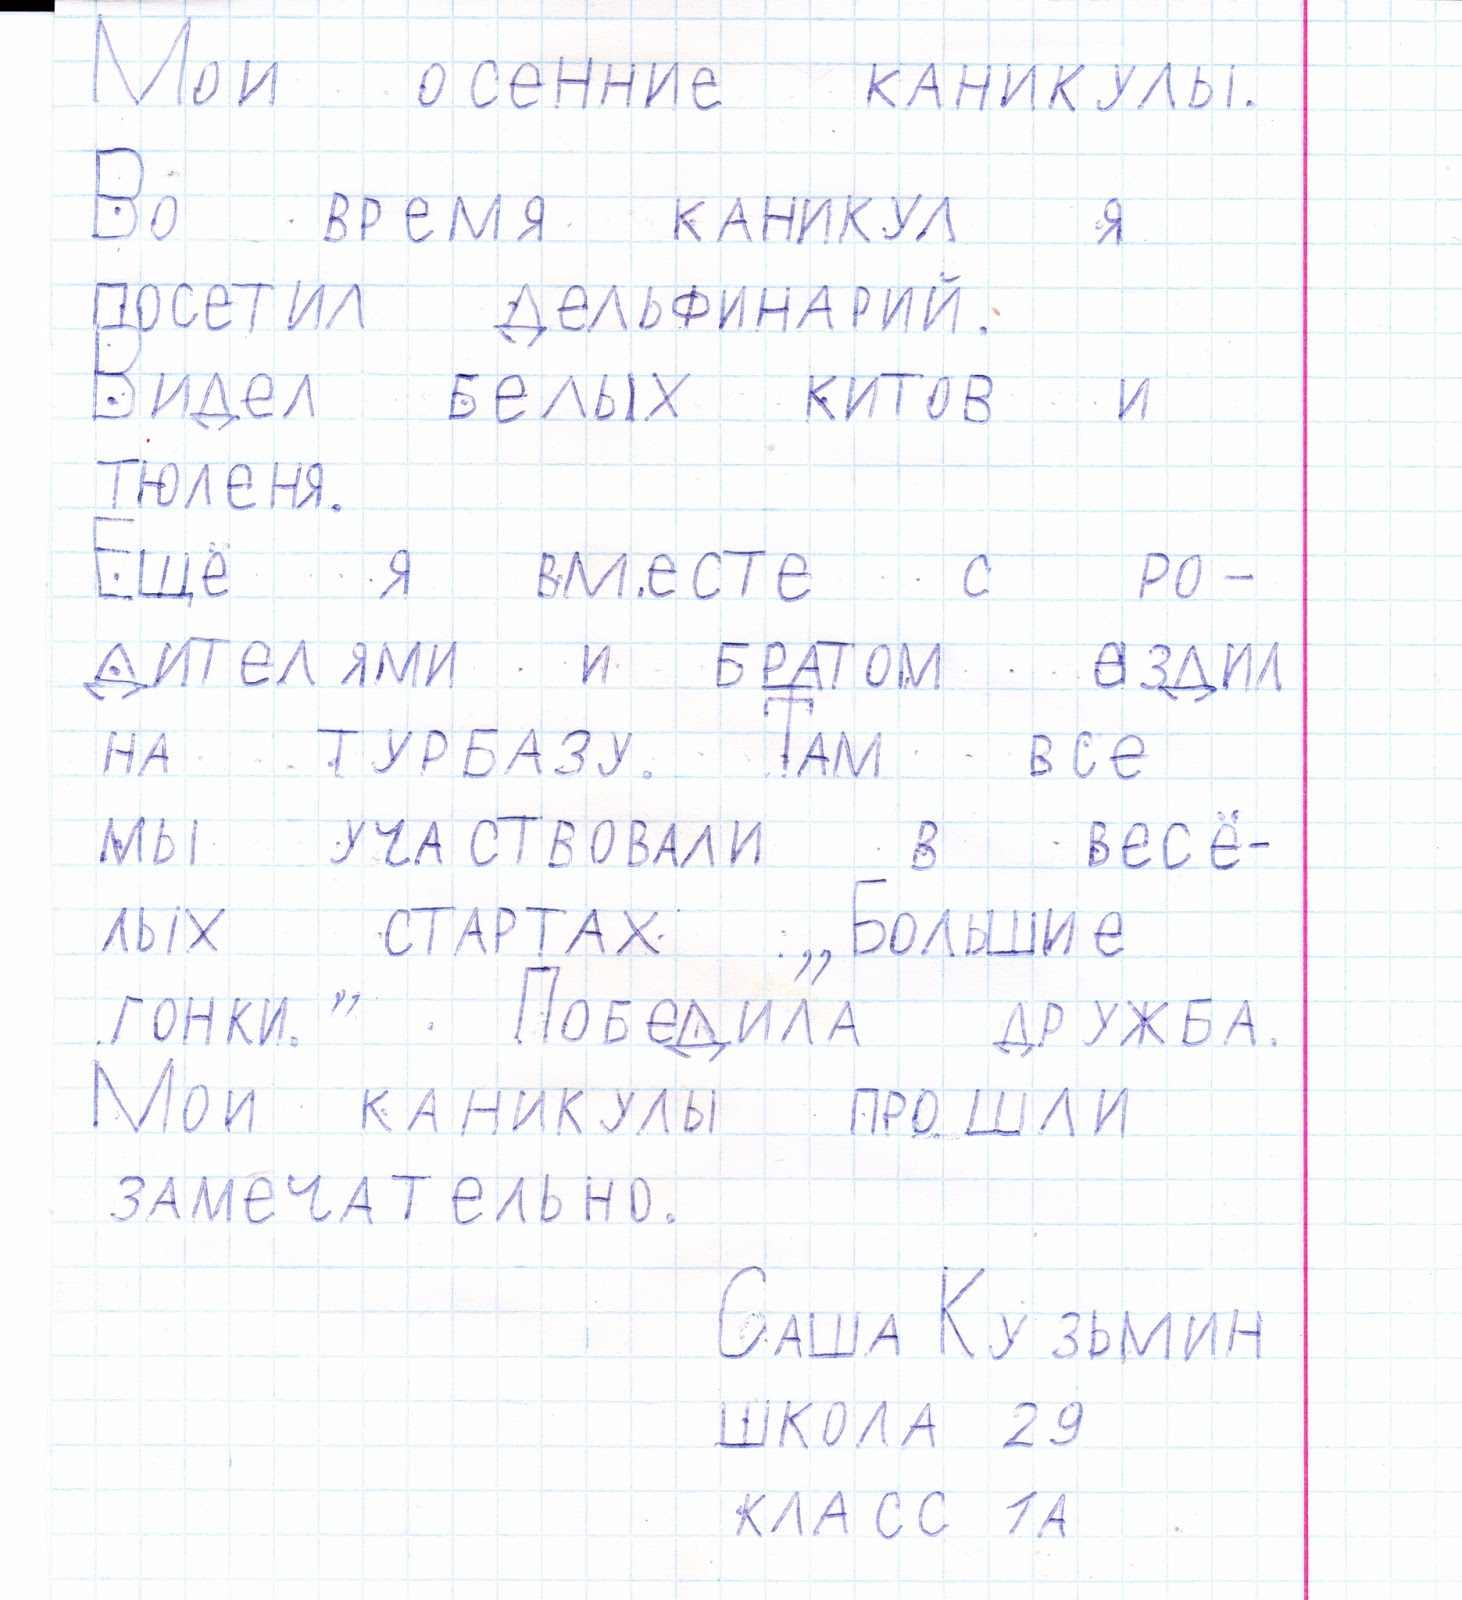 Мои осенние каникулы.
Во время каникул я
посетил дельфинарий.
Видел белых китов и
тюленя.
Ещё я вместе с ро-
дителями и братом ездил
на турбазу. Там все
мы участвовали в весё-
лых стартах „Большие
гонки.” Победила дружба.
Мои каникулы прошли
замечательно.
Саша Кузьмин
школа 29
класс 1А